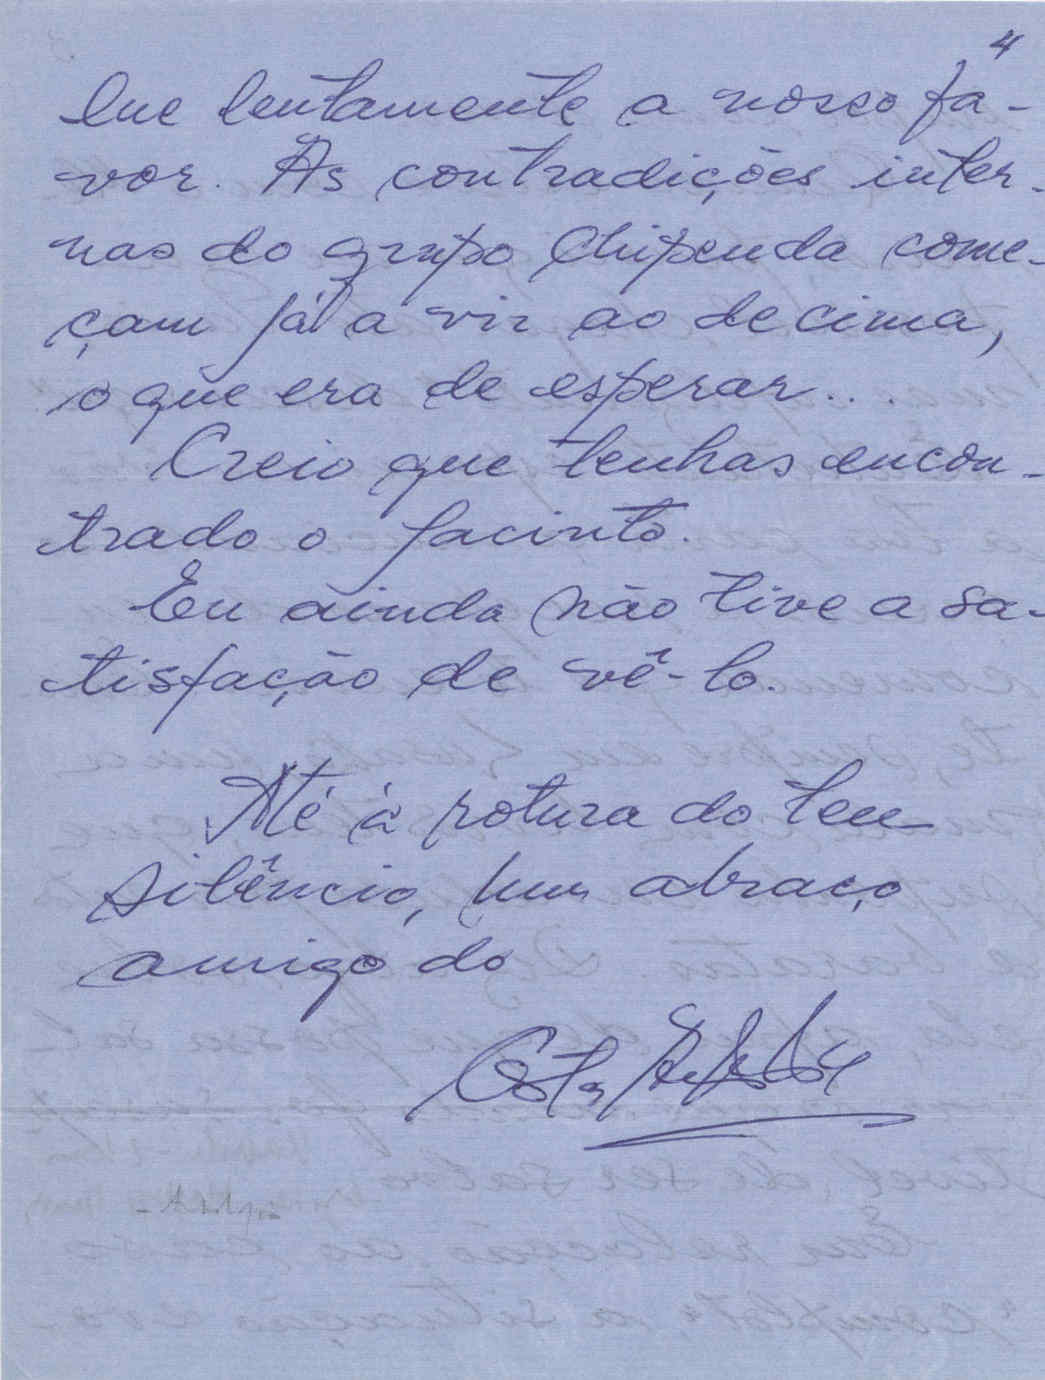 4
lue lentamente a nosso fa-
vor. As contradições inter-
nas do grupo Chipenda come-
çam já a vir ao decima,
o que era de esperar...
Creio que tenhas encon-
trado o Jacinto.
Eu ainda não tive a sa-
tisfação de vê-lo.
Até à rotura do teu
silêncio, um abraço
amigo do
Costa